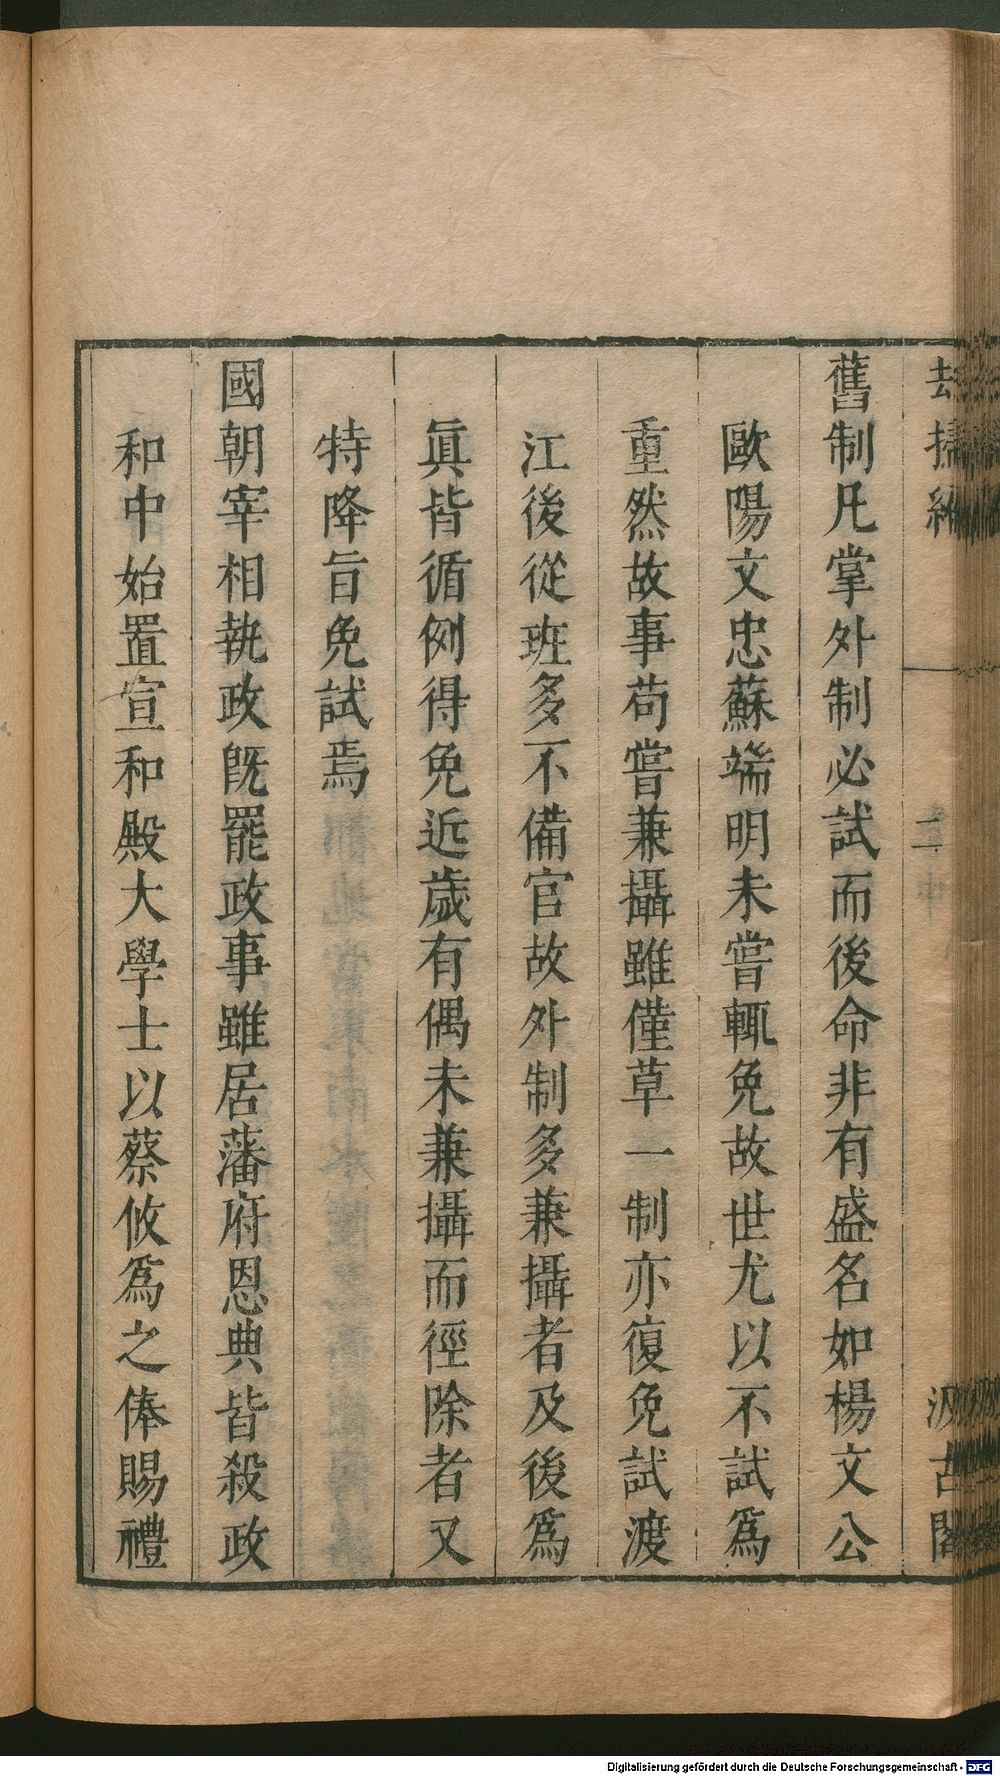 却掃編
二
汲古閣
舊制凡掌外制必試而後命非有盛名如楊文公
歐陽文忠蘇端明未嘗輒免故世尤以不試爲
重然故事苟嘗兼攝雖僅草一制亦復免試渡
江後從班多不備官故外制多兼攝者及後爲
眞皆循例得免近歲有偶未兼攝而徑除者又
特降旨免試焉
國朝宰相執政旣罷政事雖居藩府恩典皆殺政
和中始置宣和殿大學士以蔡攸爲之俸賜禮
Digitalisierung gefördert durch die Deutsche Forschungsgemeinschaft - DFG